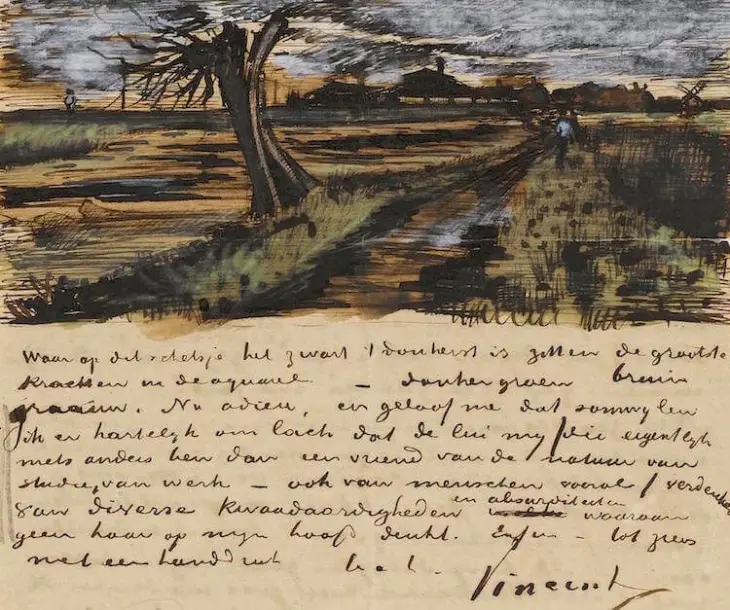 Waar op dit schetsje het zwart 't donkerst is zitten de grootste
krachten in de aquarel — donkergroen bruin
graauw. Nu adieu, en geloof me dat somwijlen
ik er hartelyk om lach dat de lui my /die eigentlyk
niets anders ben dan een vriend van de natuur van
studie, van werk — ook van menschen vooral/ verdenken
van diverse kwaadaardigheden en absurditeiten waaraan
geen haar op myn hoofd denkt. Enfin — tot ziens
met een handdruk t. à t.
Vincent